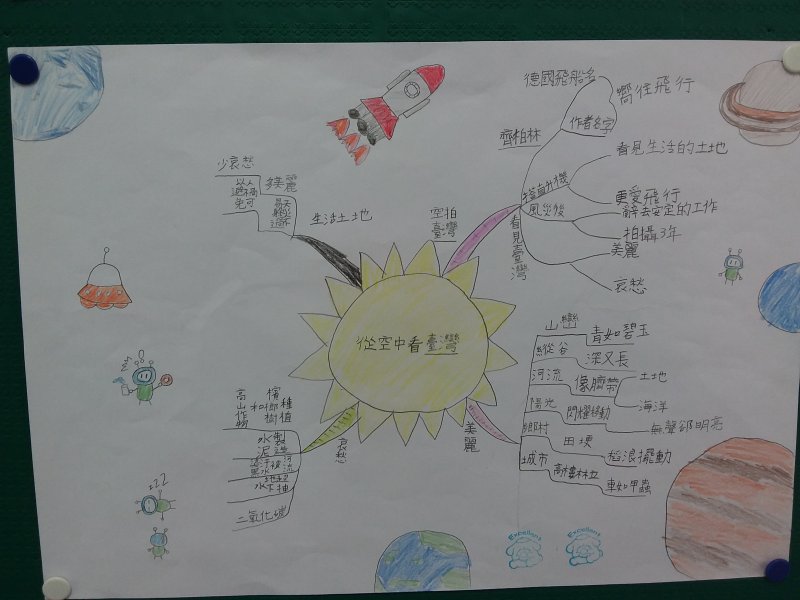 從空中看臺灣
空拍
臺灣
齊柏林
德國飛船名
嚮往飛行
作者名字
搭直升機
看見生活的土地
更愛飛行
風災後
辭去安定的工作
拍攝3年
看見臺灣
美麗
哀愁
美麗
山巒
青如碧玉
縱谷
深又長
河流
像臍帶
土地
海洋
陽光
閃耀移動
無聲卻明亮
鄉村
田埂
稻浪擺動
城市
高樓林立
車如甲蟲
Excellent
Excellent
哀愁
高山作物
和
檳榔樹
種植
水泥
製造
河流
二氧化碳
生活土地
多美麗
少哀愁